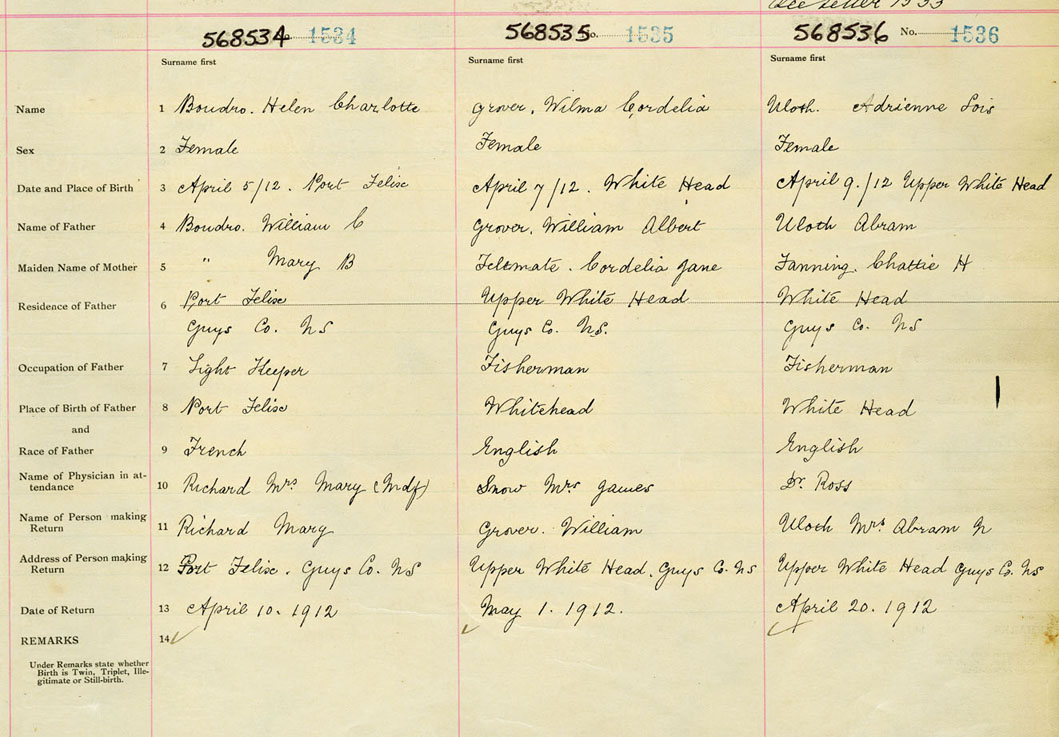 See letter 1533
568534 No. 1534 568535 No. 1535 568536 No. 1536
Surname first Surname first Surname first
Name 1 Boudro. Helen Charlotte Grover. Wilma Cordelia Uloth. Adrienne Lois
Sex 2 Female Female Female
Date and Place of Birth 3 April 5/12. Port Felix April 7/12. White Head April 9./12 Upper White Head
Name of Father 4 Boudro. William C Grover. William Albert Uloth Abram
Maiden Name of Mother 5 " Mary B Feltmate. Cordelia Jane Fanning. Chattie H
Residence of Father 6 Port Felix Upper White Head White Head
Guys Co. NS Guys Co. NS. Guys Co. NS
Occupation of Father 7 Light Keeper Fisherman Fisherman
Place of Birth of Father 8 Port Felix Whitehead White Head
and
Race of Father 9 French English English
Name of Physician in at-
tendance 10 Richard Mrs Mary (Mdf) Snow Mrs James Dr. Ross
Name of Person making
Return 11 Richard Mary Grover. William Uloth Mrs Abram N
Address of Person making
Return 12 Port Felix. Guys Co. NS Upper White Head. Guys Co. NS Upper White Head Guys Co. NS
Date of Return 13 April 10. 1912 May 1. 1912. April 20. 1912
REMARKS 14
Under Remarks state whether
Birth is Twin, Triplet, Ille-
gitimate or Still-birth.